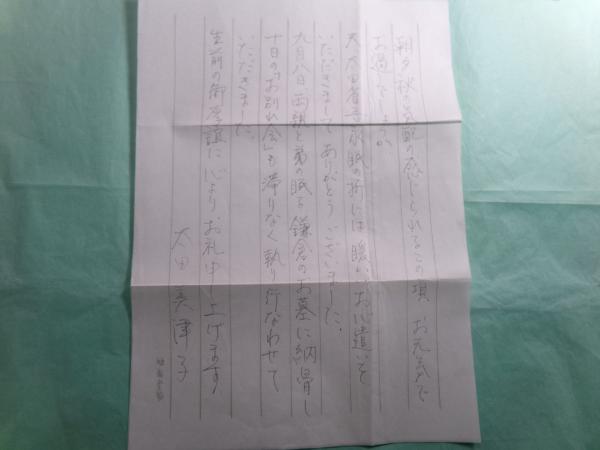 朝夕秋の気配の感じられるこの頃 お元気で
お過しでしょうか
夫 太田省吾永眠の折には暖かいお心遣いを
いただきまして ありがとうございました。
九月八日両親と弟の眠る鎌倉のお墓に納骨し
十日の「お別れ会」も滞りなく執り行なわせて
いただきました。
生前の御厚誼に心よりお礼申し上げます
太田美津子